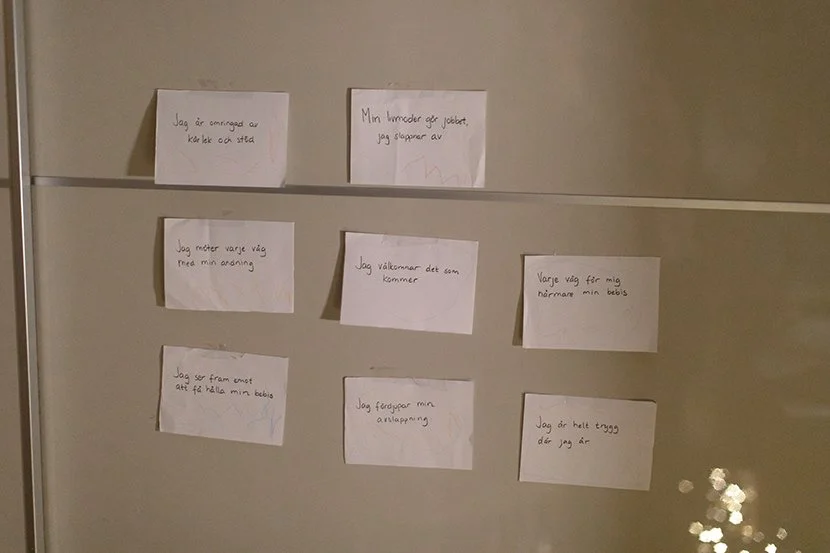 Jag är omringad av
kärlek och stöd
Min livmoder gör jobbet,
jag slappnar av
Jag möter varje våg
med min andning
Jag välkomnar det som
kommer
Varje våg för mig
närmare min bebis
Jag ser fram emot
att få hålla min bebis
Jag fördjupar min
avslappning
Jag är helt trygg
där jag är